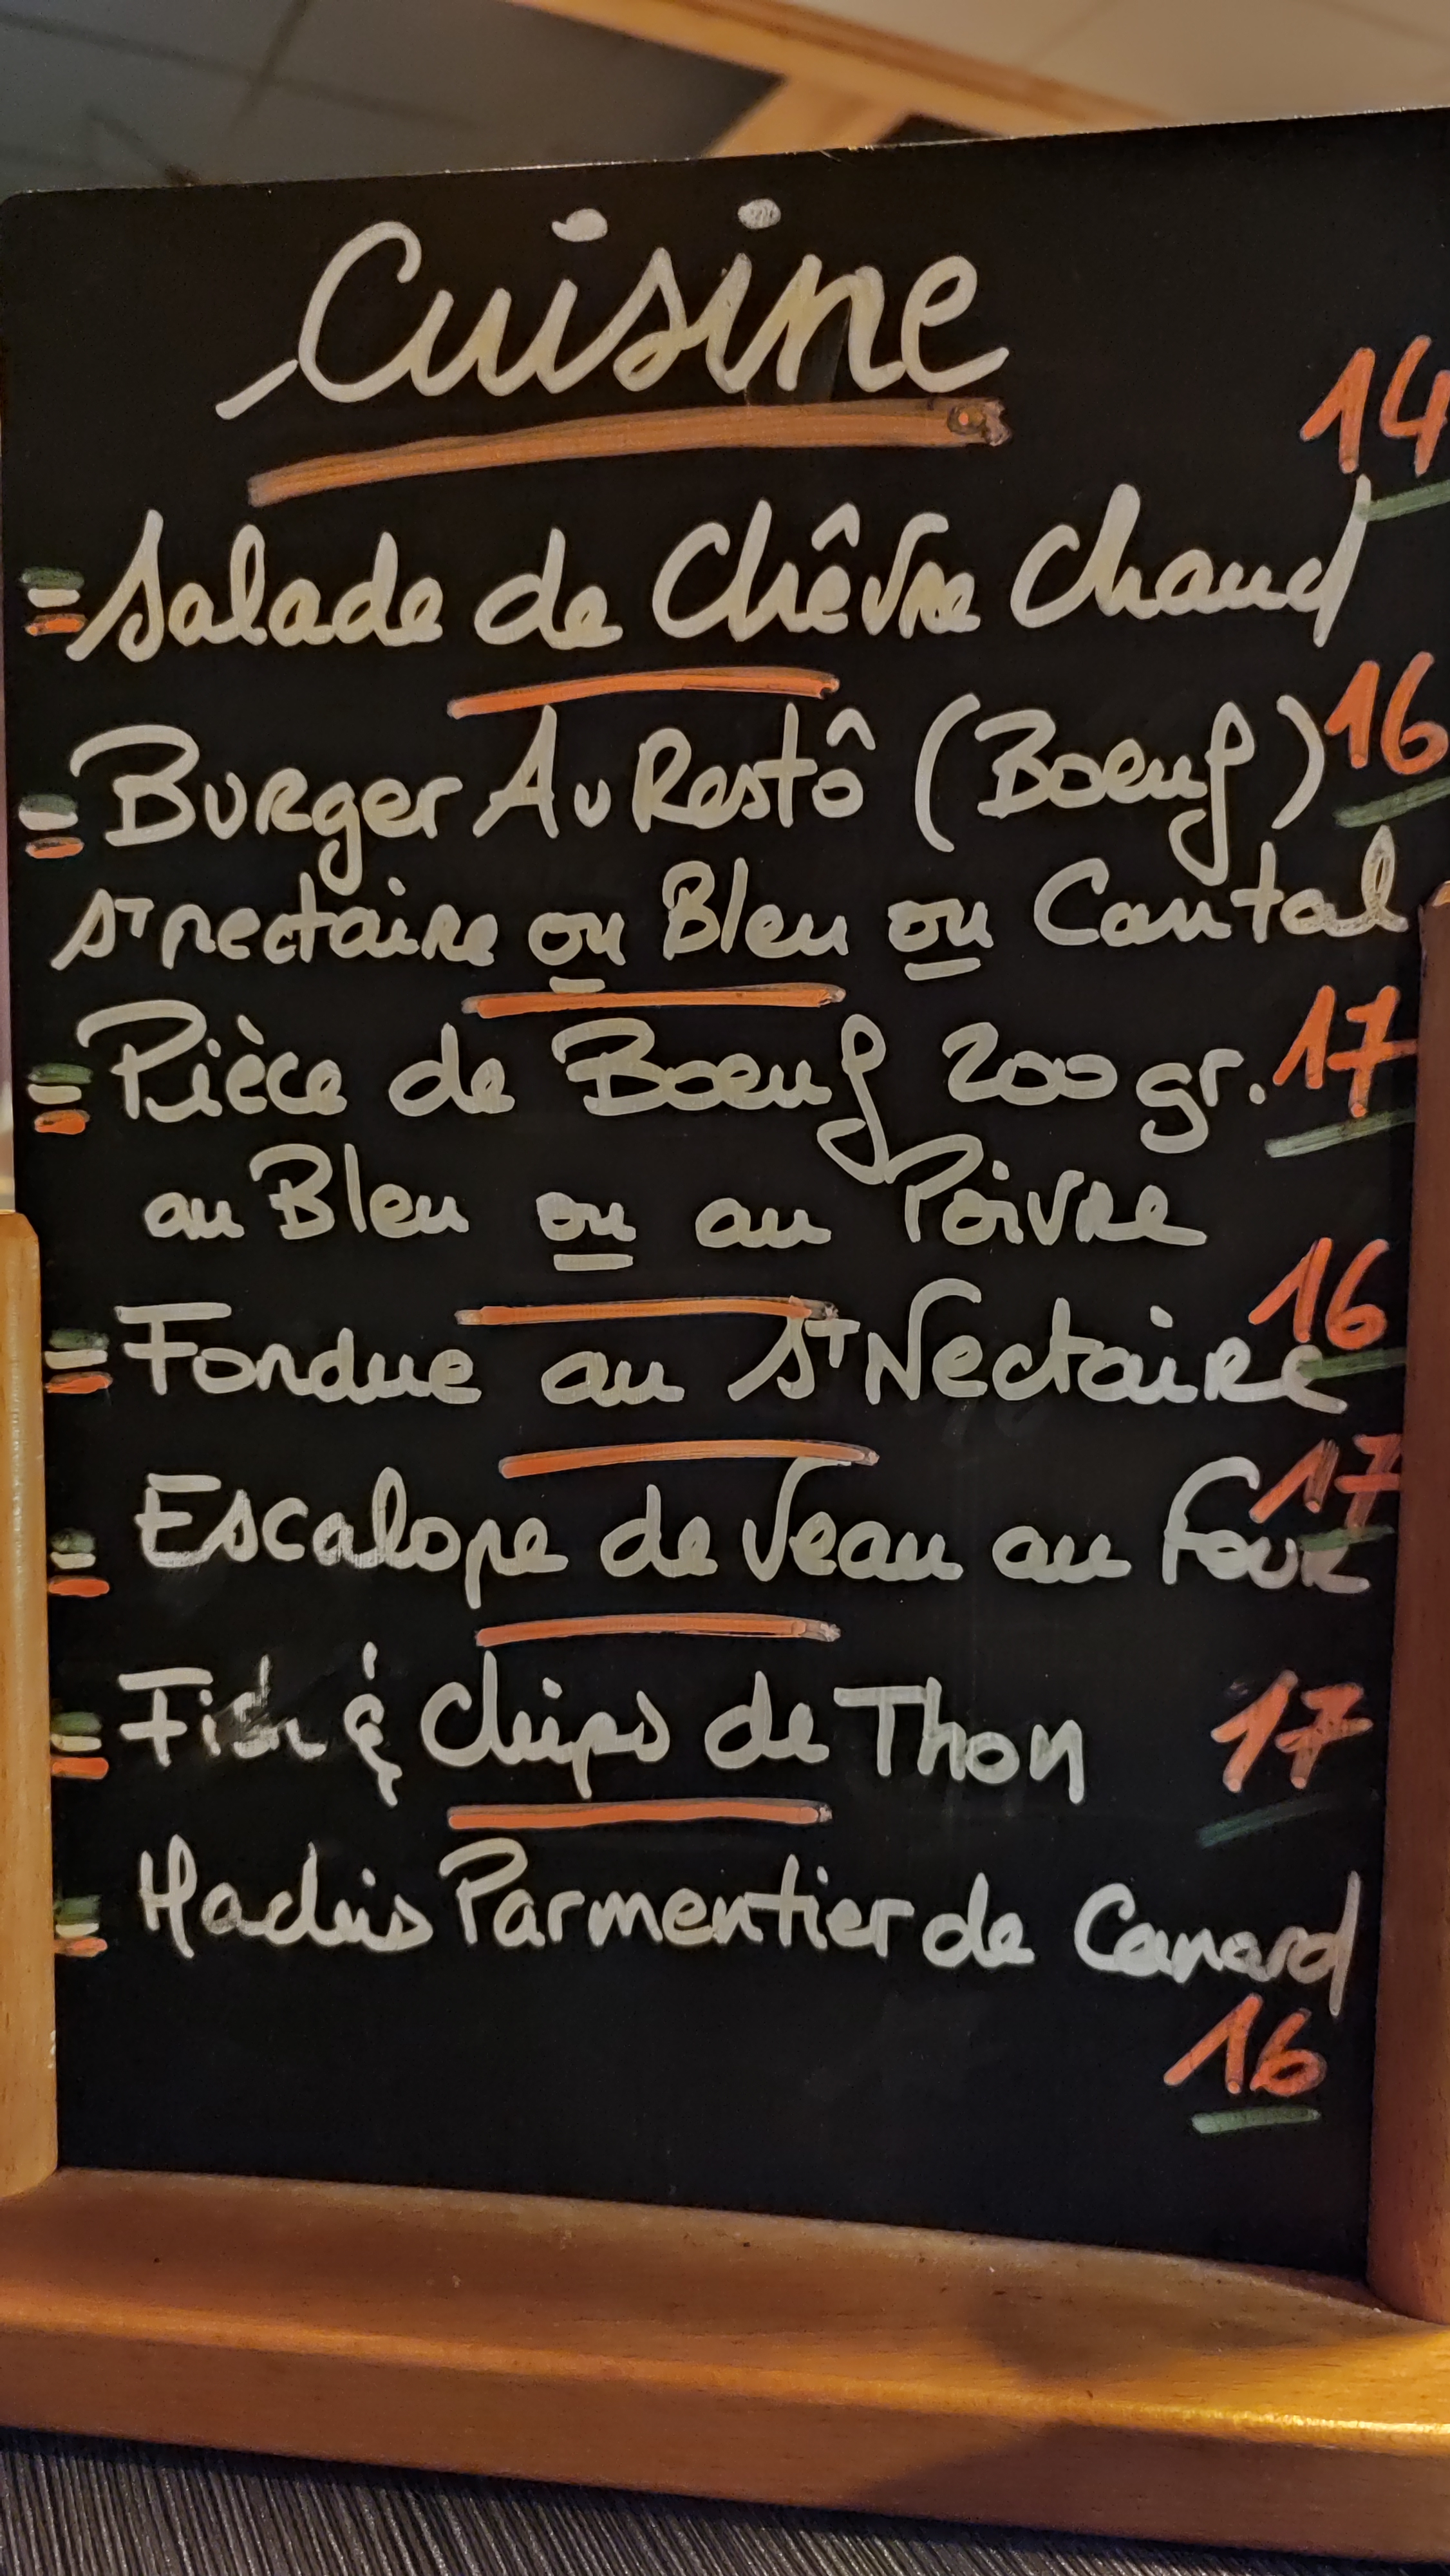 Cuisine
14
Salade de Chêvre Chaud
Burger Au Restô (Boeuf) 16
St nectaire ou Bleu ou Cantal
Pièce de Boeuf 200 gr. 17
au Bleu ou au Poivre
16
Fondue au St Nectaire
17
Escalope de Veau au Four
Fish & Chips de Thon 17
Hachis Parmentier de Canard
16